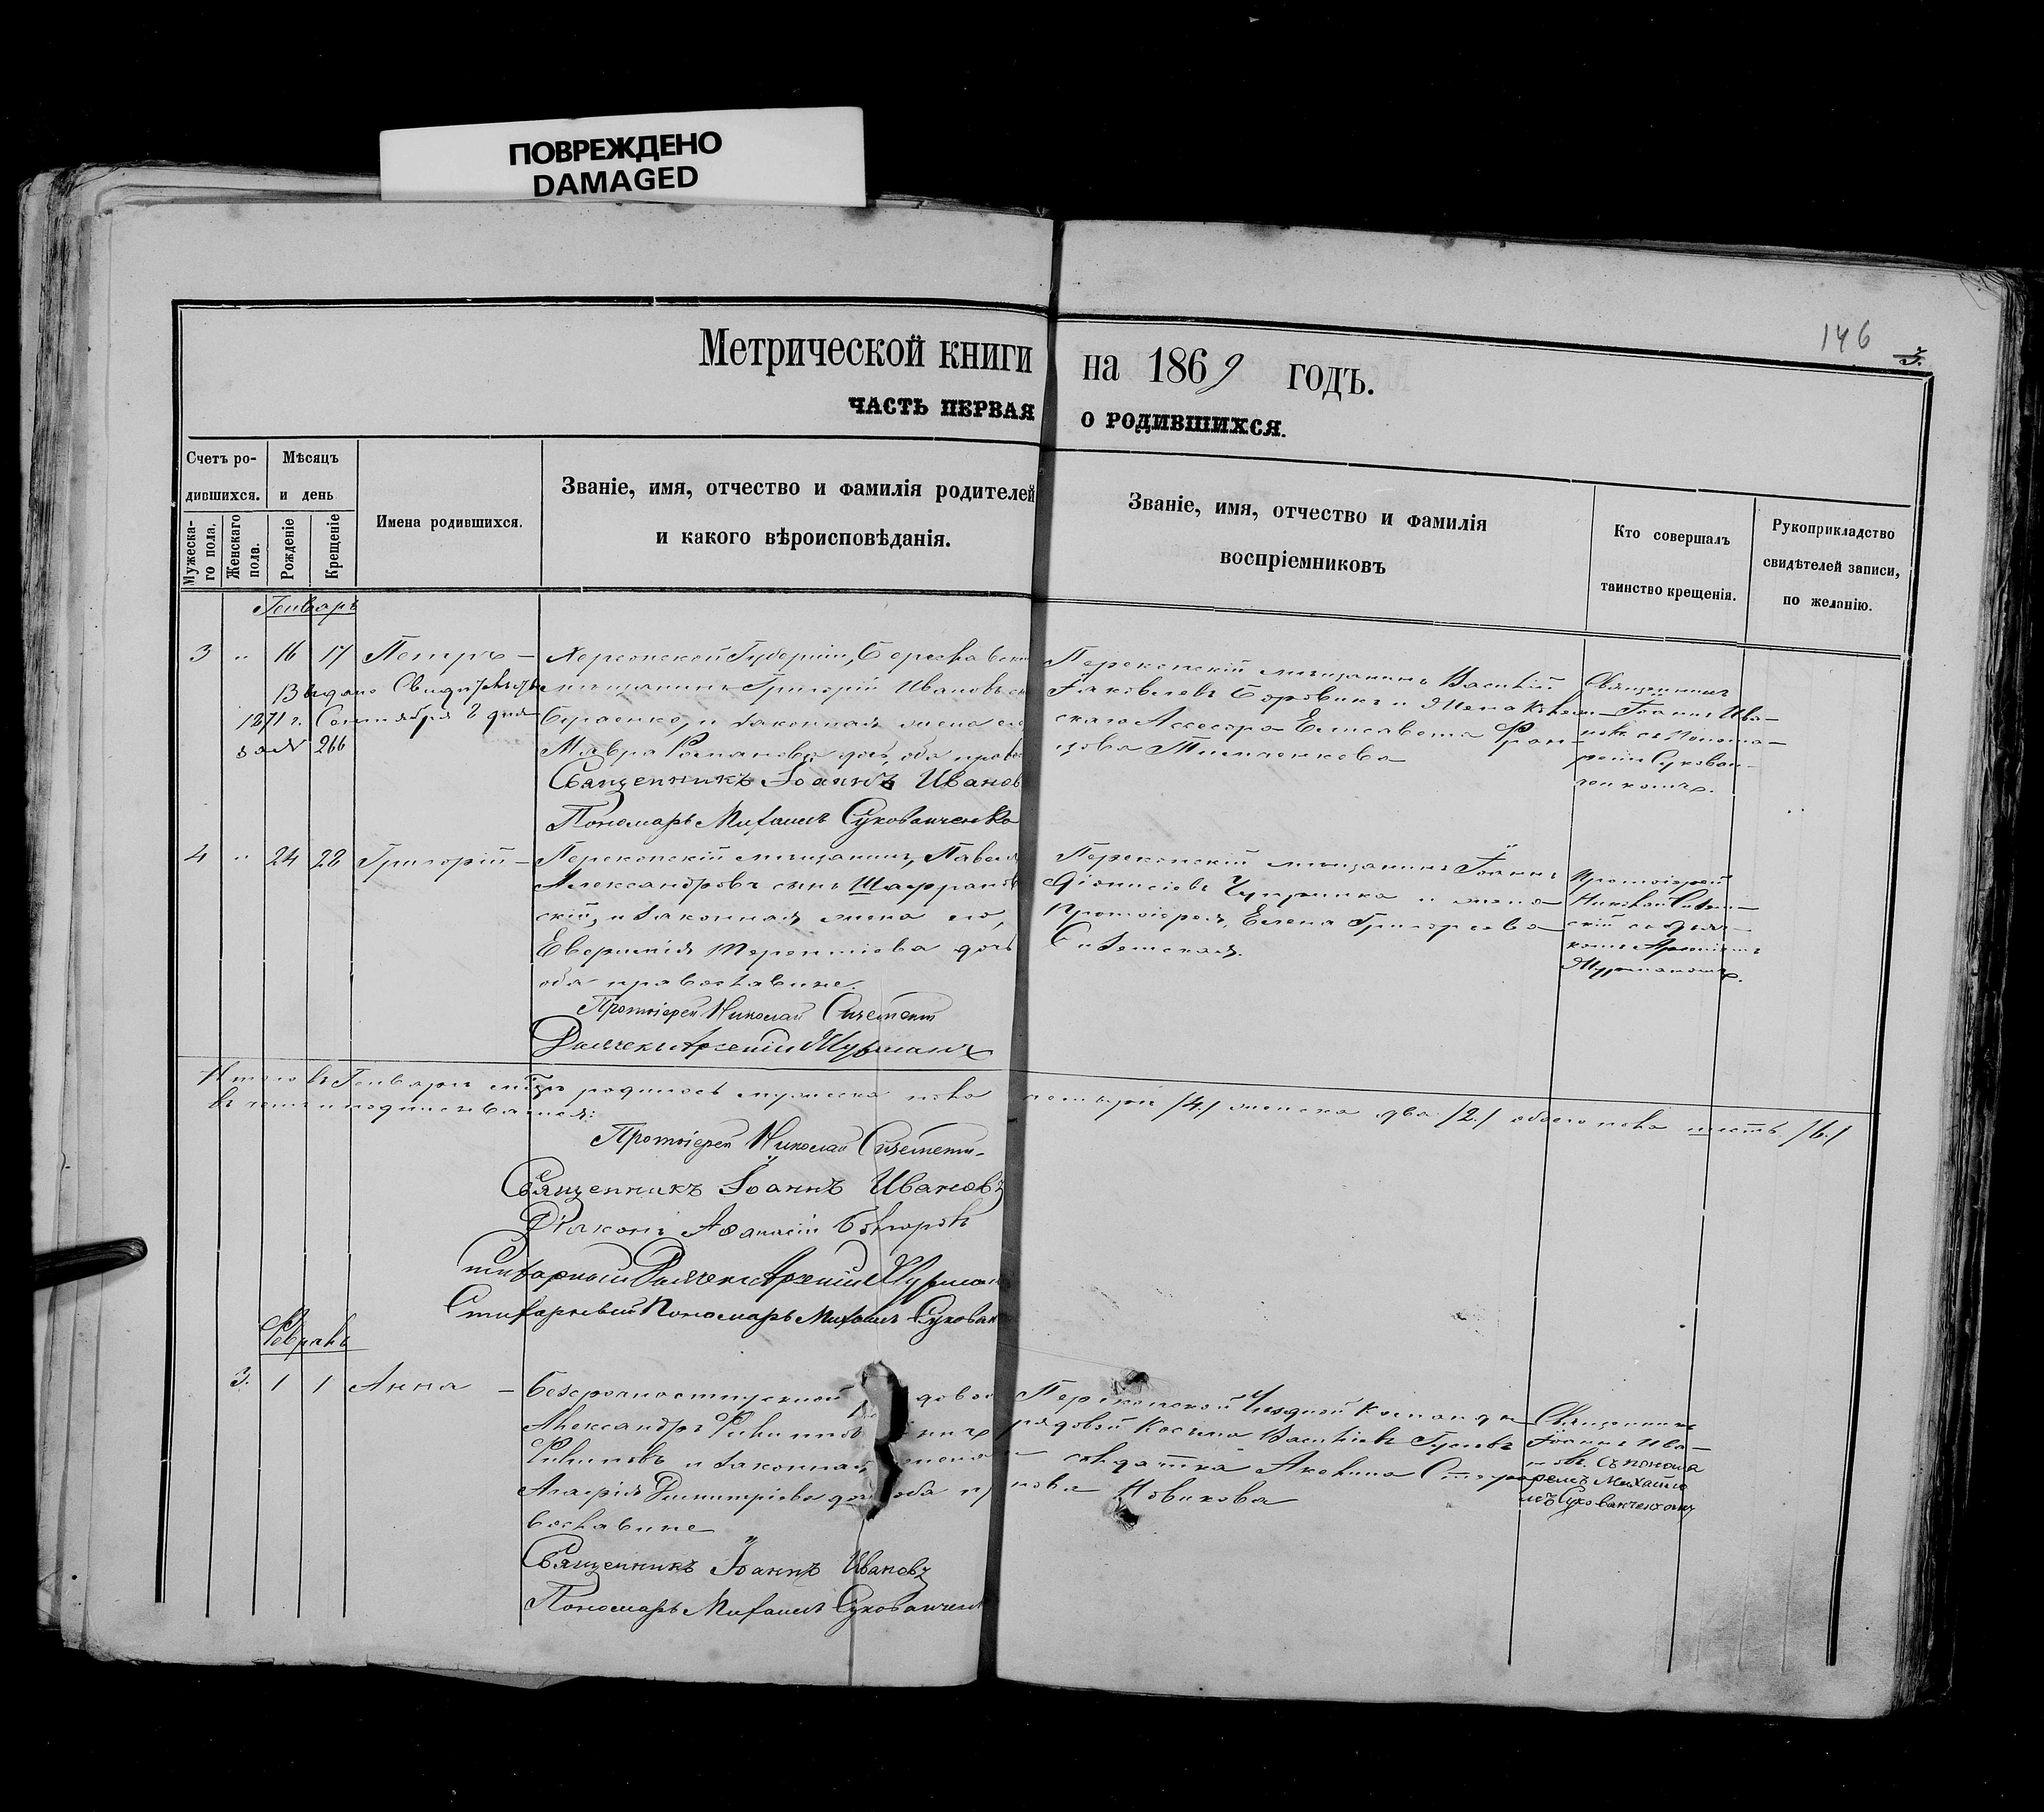 ПОВРЕЖДЕНО
DAMAGED
146
3.
Метрической книги на 1869 годъ.
ЧАСТЬ ПЕРВАЯ О РОДИВШИХСЯ.
Счетъ ро-
дившихся.
Мужеска-
го пола.
Женскаго
пола.
Мѣсяцъ
и день
Рожденіе
Крещеніе
Имена родившихся.
Званіе, имя, отчество и фамилія родителей
и какого вѣроисповѣданія.
Званіе, имя, отчество и фамилія
воспріемниковъ
Кто совершалъ
таинство крещенія.
Рукоприкладство
свидѣтелей записи,
по желанію.
Генварь
3 " 16 17 Петръ —
Выдано Свидѣтельство
1871 г. Сентября 2 дня
за N 266
Херсонской Губерніи,
мѣщанинъ Григорій Ивановъ
и законная жена его
Мавра Романова дочь, оба право
Священникъ Іоаннъ Иванов
Пономарь Михаилъ Сукованченко
Перекопскій мѣщанинъ Василій
Яковлевъ Боровикъ и жена
скаго Ассесора Елисавета Фран-
цова
Священникъ
Іоаннъ Ива-
новъ съ Понома-
ремъ Сукован-
ченкомъ.
4 " 24 28 Григорій —
Перекопскій мѣщанинъ, Павелъ
Александровъ сынъ Шафранов
скій, и законная жена его,
Терентіева дочь
оба православные.
Протоіерей Николай
Дьячекъ Арсеній
Перекопскій мѣщанинъ Іоаннъ
Діонисіевъ и жена
Протоіерея, Елена Григорьева
Протоіерей
Николай
скій съ дьяч-
комъ Арсеніемъ
Итого въ Генварѣ мцѣ родилось мужеска пола четыре /4./ женска два /2./ обоего пола шесть /6./
въ чемъ и подписываемся:
Протоіерей Николай
Священникъ Іоаннъ Ивановъ
Діаконъ Аѳанасій
Дьячекъ Арсеній
Пономарь Михаилъ Сукован
Февраль
3. 1 1 Анна —
Безсрочноотпускной довой
Александръ
и законная жена
Димитріева дочь оба пр
вославные
Священникъ Іоаннъ Ивановъ
Пономарь Михаилъ Сукованчен
Перекопской Уѣздной Команды
рядовой Косьма Васильевъ Гусевъ
— солдатка Акилина
нова Новикова
Священникъ
Іоаннъ Ива-
новъ Съ понома
ремъ Михаило
мъ Сукованченкомъ